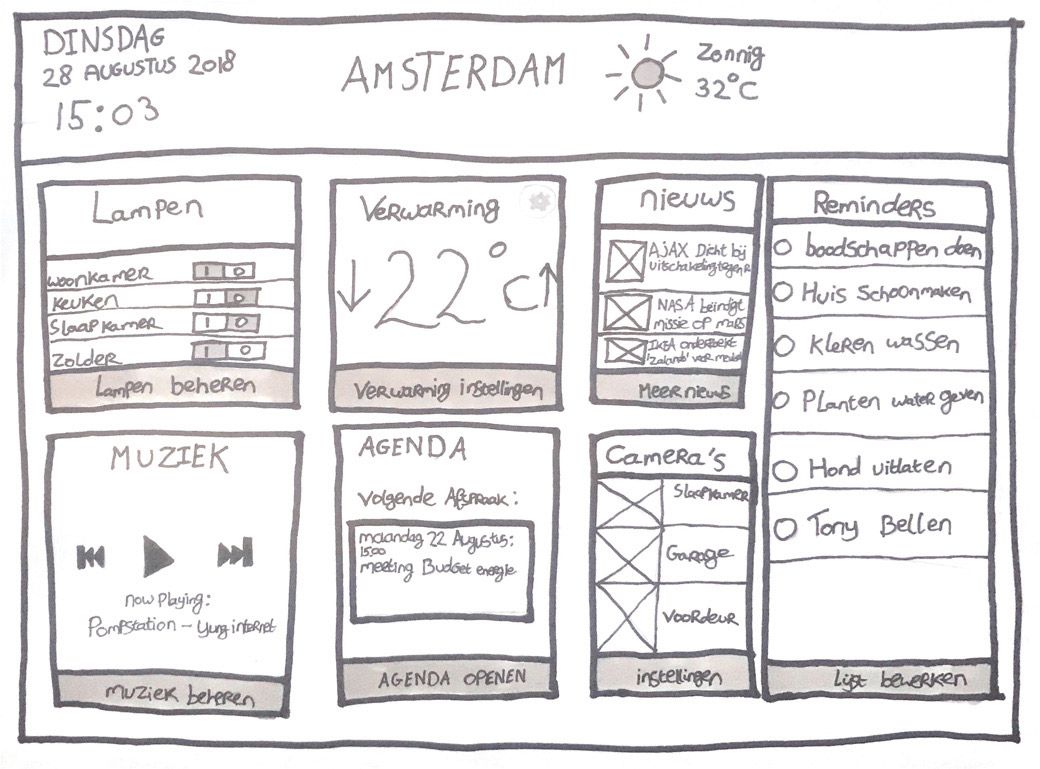 DINSDAG
28 AUGUSTUS 2018
15:03
AMSTERDAM
Zonnig
32°C
Lampen
woonkamer
I O
Keuken
I O
Slaapkamer
I O
Zolder
I O
Lampen beheren
Verwarming
↓ 22°C ↑
Verwarming instellingen
nieuws
AJAX Dicht bij
uitschakeling tegen
NASA beindigt
missie op mars
IKEA
'Zalando' voor
Meer nieuws
Reminders
boodschappen doen
Huis schoonmaken
Kleren wassen
Planten water geven
Hond uitlaten
Tony Bellen
Lijst bewerken
MUZIEK
now Playing:
Pompstation - Yung internet
muziek beheren
AGENDA
Volgende Afspraak:
maandag 22 Augustus:
15:00
meeting Budget energie
AGENDA OPENEN
Camera's
Slaapkamer
Garage
Voordeur
instellingen